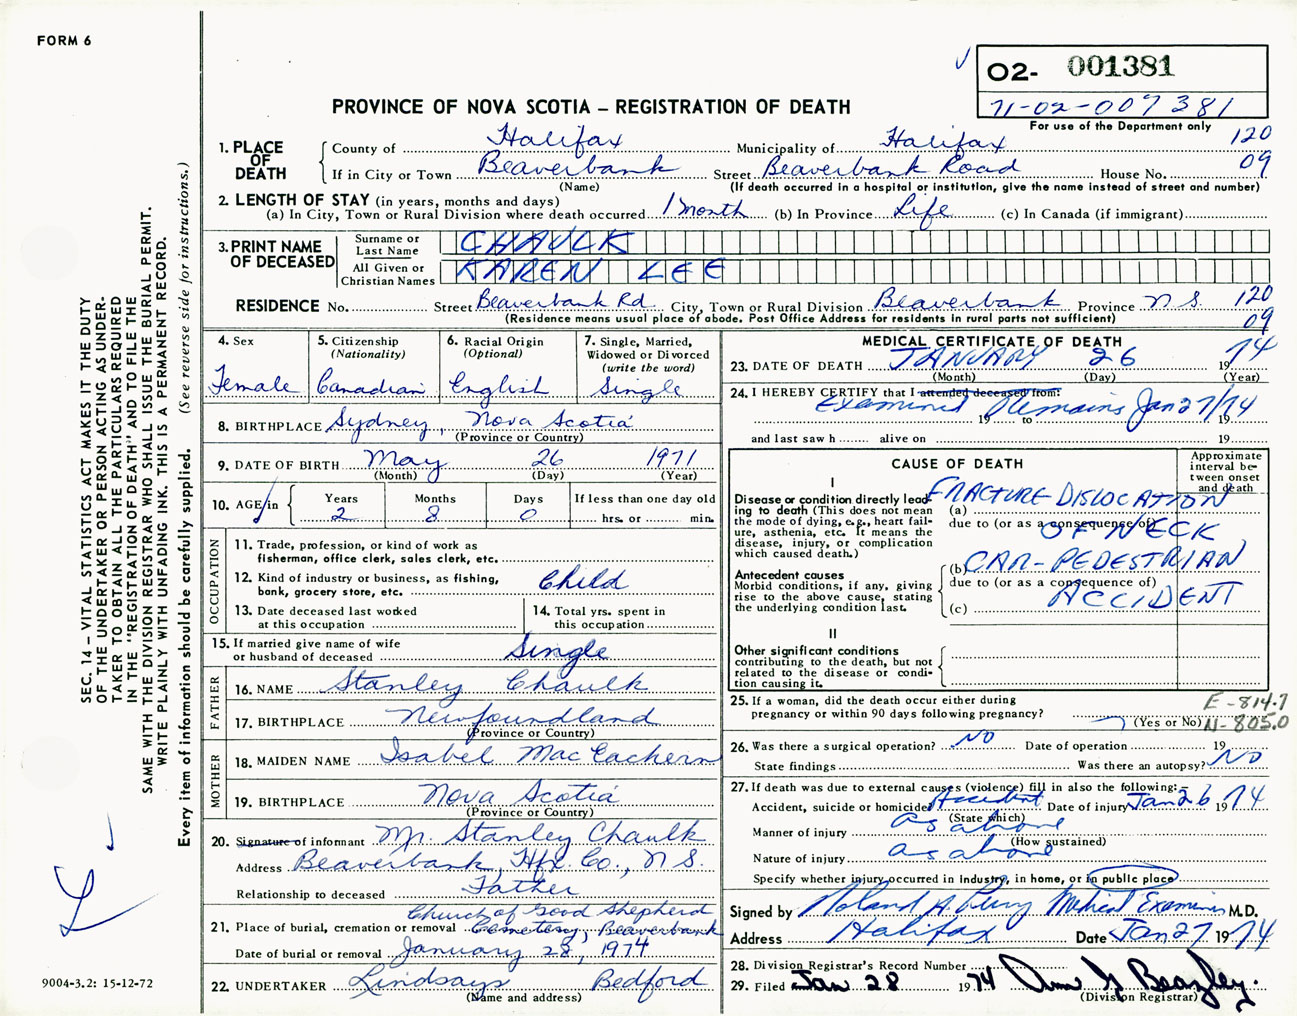 FORM 6
O2- 001381
71-02-007381
For use of the Department only
PROVINCE OF NOVA SCOTIA – REGISTRATION OF DEATH
120
09
1. PLACE OF DEATH
County of Halifax Municipality of Halifax
If in City or Town Beaverbank Street Beaverbank Road House No.
(Name) (If death occurred in a hospital or institution, give the name instead of street and number)
2. LENGTH OF STAY (in years, months and days)
(a) In City, Town or Rural Division where death occurred 1 month (b) In Province Life (c) In Canada (if immigrant)
3. PRINT NAME OF DECEASED
Surname or Last Name CHAULK
All Given or Christian Names KAREN LEE
RESIDENCE No. Street Beaverbank Rd. City, Town or Rural Division Beaverbank Province N.S. 120
(Residence means usual place of abode. Post Office Address for residents in rural parts not sufficient) 09
4. Sex Female
5. Citizenship (Nationality) Canadian
6. Racial Origin (Optional) English
7. Single, Married, Widowed or Divorced (write the word) Single
8. BIRTHPLACE Sydney, Nova Scotia
(Province or Country)
9. DATE OF BIRTH May 26 1971
(Month) (Day) (Year)
10. AGE in Years 2 Months 8 Days 0 If less than one day old hrs. or min.
OCCUPATION
11. Trade, profession, or kind of work as fisherman, office clerk, sales clerk, etc.
12. Kind of industry or business, as fishing, bank, grocery store, etc. Child
13. Date deceased last worked at this occupation
14. Total yrs. spent in this occupation
15. If married give name of wife or husband of deceased Single
FATHER
16. NAME Stanley Chaulk
17. BIRTHPLACE Newfoundland
(Province or Country)
MOTHER
18. MAIDEN NAME Isabel MacEachern
19. BIRTHPLACE Nova Scotia
(Province or Country)
20. Signature of informant Mr. Stanley Chaulk
Address Beaverbank, Hfx. Co., N.S.
Relationship to deceased Father
21. Place of burial, cremation or removal Church of Good Shepherd Cemetery, Beaverbank
Date of burial or removal January 28, 1974
22. UNDERTAKER Lindsays Bedford
(Name and address)
MEDICAL CERTIFICATE OF DEATH
23. DATE OF DEATH JANUARY 26 1974
(Month) (Day) (Year)
24. I HEREBY CERTIFY that I attended deceased from:
Examined Remains Jan 27/74
19 to 19
and last saw h alive on 19
CAUSE OF DEATH
Approximate interval between onset and death
I
Disease or condition directly leading to death (This does not mean the mode of dying, e.g., heart failure, asthenia, etc. It means the disease, injury, or complication which caused death.)
(a) FRACTURE DISLOCATION
due to (or as a consequence of)
OF NECK
Antecedent causes
Morbid conditions, if any, giving rise to the above cause, stating the underlying condition last.
(b) CAR-PEDESTRIAN
due to (or as a consequence of)
ACCIDENT
(c)
II
Other significant conditions
contributing to the death, but not related to the disease or condition causing it.
25. If a woman, did the death occur either during pregnancy or within 90 days following pregnancy? (Yes or No)
E-814.7
N-805.0
26. Was there a surgical operation? NO Date of operation 19
State findings Was there an autopsy? NO
27. If death was due to external causes (violence) fill in also the following:
Accident, suicide or homicide Accident Date of injury Jan 26 1974
(State which)
Manner of injury as above
(How sustained)
Nature of injury as above
Specify whether injury occurred in industry, in home, or in public place
Signed by Roland A. Perry Medical Examiner M.D.
Address Halifax Date Jan 27 1974
28. Division Registrar's Record Number
29. Filed Jan 28 1974
(Division Registrar)
SEC. 14 – VITAL STATISTICS ACT MAKES IT THE DUTY
OF THE UNDERTAKER OR PERSON ACTING AS UNDERTAKER TO OBTAIN ALL THE PARTICULARS REQUIRED
IN THE "REGISTRATION OF DEATH" AND TO FILE THE
SAME WITH THE DIVISION REGISTRAR WHO SHALL ISSUE THE BURIAL PERMIT.
WRITE PLAINLY WITH UNFADING INK. THIS IS A PERMANENT RECORD.
Every item of information should be carefully supplied. (See reverse side for instructions.)
9004-3.2: 15-12-72